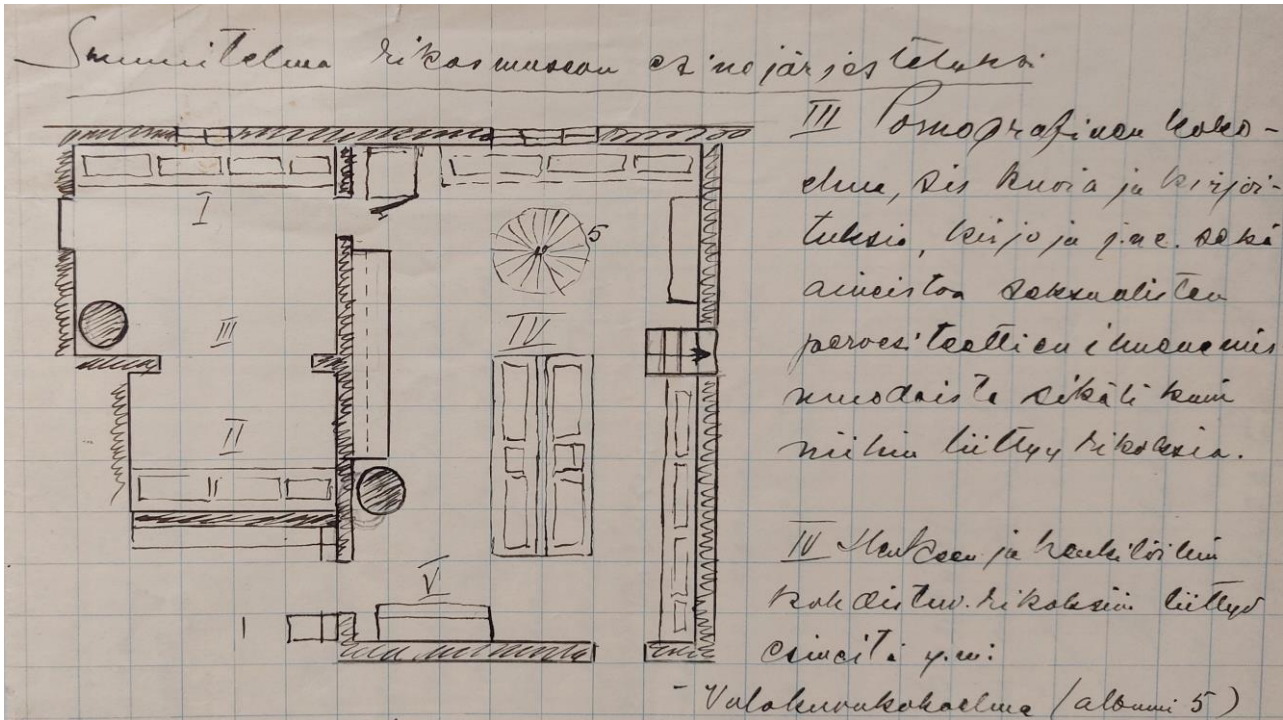 Suunnitelma rikosmuseon esinejärjestelyksi
III Pornografinen koko-
elma, sis kuvia ja kirjoi-
tuksia, kirjoja j.n.e. sekä
aineistoa seksualisten
perversiteettien ilmenemis
muodoista sikäli kuin
niihin liittyy rikoksia.
I
5
III
IV
II
IV Henkeen ja henkilöihin
kohdistuv. rikoksiin liittyv
esineitä y.m:
V
- Valokuvakokoelma (albumi 5)